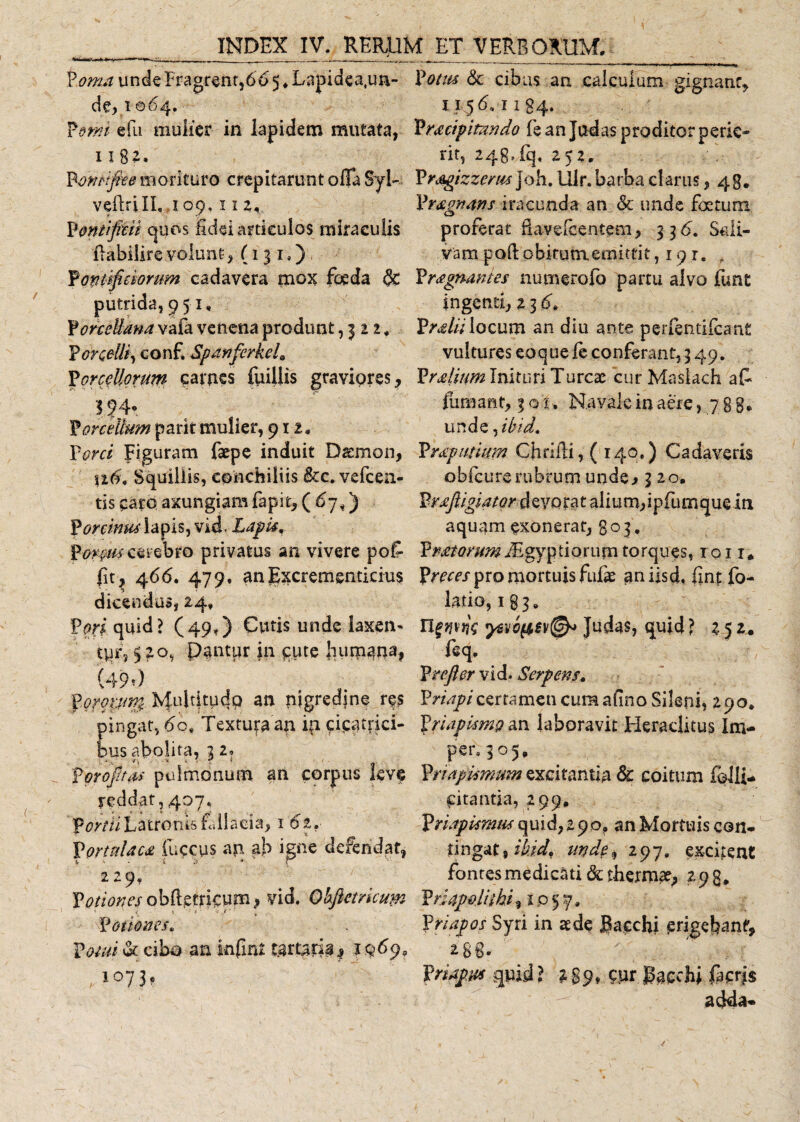 INDEX IV. RERUM ET VERBORUM.
Poma unde Fragrent, 665. Lapidea, un-
de, 1064.
Pomi esu mulier in lapidem mutata,
1182.
Pontifice morituro crepitarunt ossa Syl-
vestri II. 109. 112.
Pontificii quos fidei articulos miraculis
stabilire volunt, (131.)
Pontificiorum cadavera mox foeda &
putrida, 951.
Porcellana vasa venena produnt, 322.
Porcelli, conf. Spanferkel.
Porcellorum carnes suillis graviores,
394.
Porcellum parit mulier, 912.
Porci Figuram saepe induit Daemon,
126. Squillis, conchiliis &c. vescen-
tis caro axungiam sapit, (67,)
Porcinus lapis, vid. Lapis.
Porcus cerebro privatus an vivere pos-
sit, 466. 479. an Excrementicius
dicendus, 24.
Pori quid? (49,) Cutis unde laxen-
tur, 520, Dantur in cute humana,
(49.)
Pororum Multitudo an nigredine res
pingat, 60. Textura an in cicatrici-
bus abolita, 32.
Porositas pulmonum an corpus leve
reddat, 407.
Portii Latronis fallacia, 162.
Portulacæ succus an ab igne defendat,
229.
Potiones obstetricum, vid. Obstetricum
Potiones.
Potui & cibo an insint tartaria, 1069.
1073.
Potus & cibus an calculum gignant,
1156. 1184.
Præcipitando se an Judas proditor perie-
rit, 248. sq. 252.
Prægizzerus Joh. Ulr. barba clarus, 48.
Prægnans iracunda an & unde foetum
proferat flavescentem, 336. Sali-
vam post obitum emittit, 191.
Prægnantes numeroso partu alvo sunt
ingenti, 236.
Prælii locum an diu ante persentiscant
vultures eoque se conferant, 349.
Prælium Inituri Turcæ cur Maslach as-
sumant, 301. Navale in aëre, 788.
unde, ibid.
Præputium Christi, (140.) Cadaveris
obscure rubrum unde, 320.
Præstigiator devorat alium, ipsumque in
aquam exonerat, 803.
Prætorum Ægyptiorum torques, 1011.
Preces pro mortuis fusæ an iisd. sint so-
latio, 183.
Πρηνὴς γενόμενος Judas, quid? 252.
seq.
Prester vid. Serpens.
Priapi certamen cum asino Sileni, 290.
Priapismo an laboravit Heraclitus Im-
per. 305.
Priapismum excitantia & coitum solli-
citantia, 299.
Priapismus quid, 290. an Mortuis con-
tingat, ibid. unde, 297. excitent
fontes medicati & thermæ, 298.
Priapolithi, 1057.
Priapos Syri in æde Bacchi erigebant,
288.
Priapus quid? 289. cur Bacchi sacris
adda-